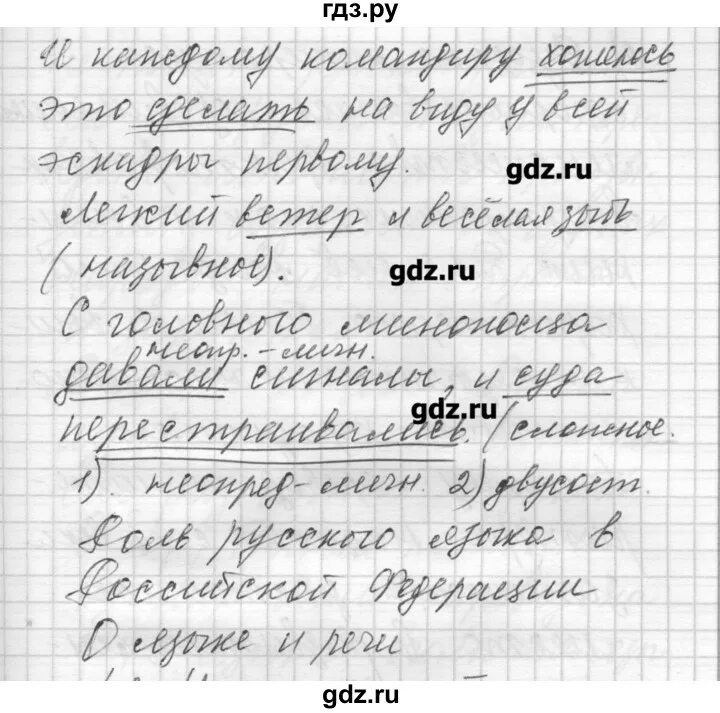 гдз.ру
И каждому командиру хотелось
это сделать на виду у всей
эскадры первому.
gdz.ru
Легкий ветер и весёлая зыбь
(назывное).
gdz.ru
С головного миноносца
неопр.-личн.
давали сигналы, и суда
gdz.ru
перестраивались. (сложное.
1). неопред-личн. 2) двусост.
Роль русского языка в
Российской Федерации
О языке и речи
gdz.ru